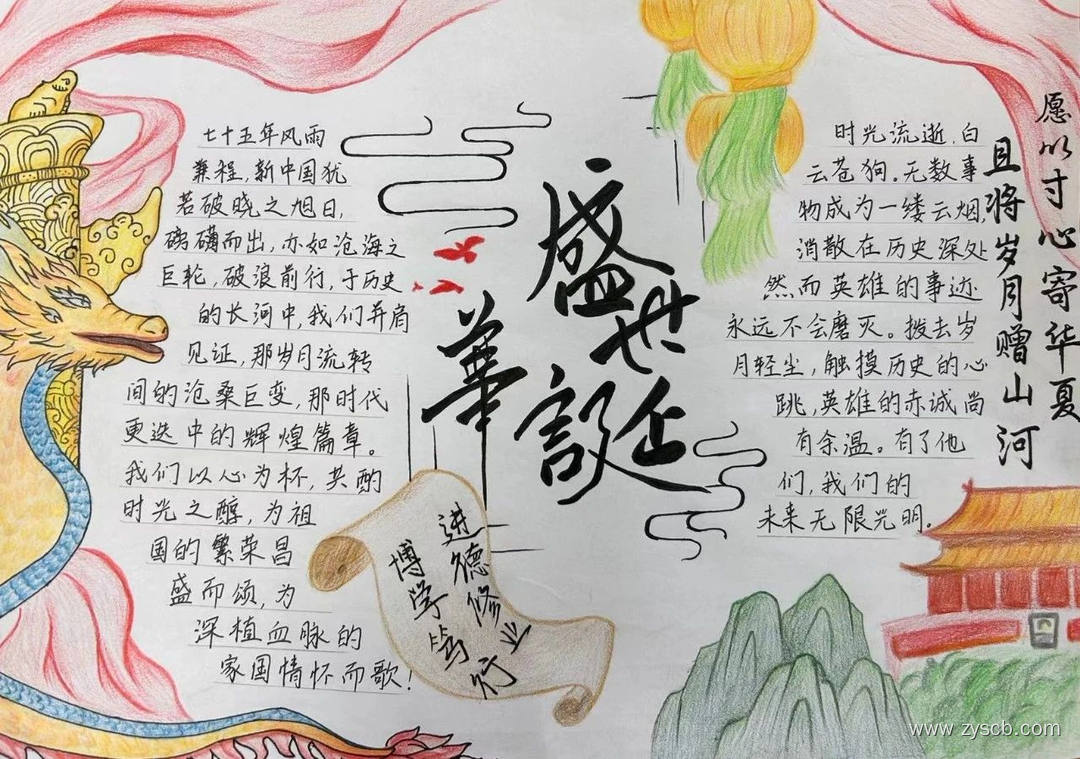 七十五年风雨
兼程,新中国犹
若破晓之旭日,
磅礴而出,亦如沧海之
巨轮,破浪前行,于历史
的长河中,我们并肩
见证,那岁月流转
间的沧桑巨变,那时代
更迭中的辉煌篇章。
我们以心为杯,共酌
时光之醇,为祖
国的繁荣昌
盛而颂,为
深植血脉的
家国情怀而歌!
盛世
華誕
进德修业
博学笃行
时光流逝,白
云苍狗。无数事
物成为一缕云烟,
消散在历史深处
然而英雄的事迹
永远不会磨灭。拨去岁
月轻尘,触摸历史的心
跳,英雄的赤诚尚
有余温。有了他
们,我们的
未来无限光明.
愿以寸心寄华夏
且将岁月赠山河
www.zyscb.com